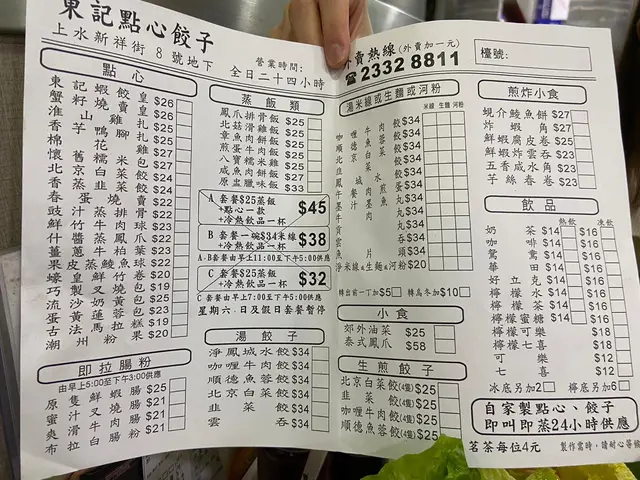 東記點心餃子
上水新祥街8號地下
營業時間:
全日二十四小時
點心
東記蝦餃皇 $26
蟹籽燒賣皇 $26
淮山雞扎 $25
香芋鴨腳扎 $25
棉花 $27
懷舊糯米 $27
北京白菜餃 $24
香茜韭菜餃 $24
春蛋燒賣 $22
豉汁蒸排骨 $22
鮮竹牛肉球 $23
什醬蒸鳳爪 $22
薑蔥牛柏葉 $22
果皮蒸鯪魚球 $22
蠔皇鮮竹卷 $20
巧製叉燒包 $19
流沙奶黃包 $25
蛋黃蓮蓉包 $23
古法馬拉糕 $19
潮州粉果 $20
即拉腸粉
由早上5:00至下午3:00供應
原隻鮮蝦腸 $25
蜜汁叉燒腸 $21
爽滑牛肉腸 $21
布拉白腸粉 $21
蒸飯類
鳳爪排骨飯 $25
北菇滑雞飯 $25
章魚肉餅飯 $25
煎蛋牛肉飯 $25
八寶糯米雞 $25
咸魚肉餅飯 $25
原盅臘味飯 $33
A 套餐$25蒸飯
+點心一款
+冷熱飲品一杯 $45
B 套餐一碗$34米線
+冷熱飲品一杯 $38
A-B套餐由早上11:00至下午5:00供應
C 套餐$25蒸飯
+冷熱飲品一杯 $32
C 套餐由早上7:00至下午5:00供應
星期六.日及假日套餐暫停
湯餃子
淨鳳城水餃 $34
咖喱牛肉餃 $34
順德魚蓉餃 $34
北京白菜餃 $34
韭菜餃 $34
雲吞 $34
外賣熱線(外賣加一元)
☎2332 8811
湯米線或生麵或河粉
米線 生麵 河粉
咖喱牛肉餃 $34
順德魚蓉餃 $34
北京白菜餃 $34
韭菜餃 $34
鳳城水餃 $34
$34
$34
$34
$34
雲吞 $34
魚片頭 $34
淨米線或生麵或河粉 $20
轉出前一丁加$5 轉烏冬加$10
小食
郊外油菜 $25
泰式鳳爪 $58
生煎餃子
北京白菜餃(4隻) $25
韭菜餃(4隻) $25
咖喱牛肉餃(4隻) $25
順德魚蓉餃(4隻) $25
檯號:
煎炸小食
蜆介鯪魚餅 $27
炸蝦角 $27
鮮蝦腐皮卷 $25
鮮蝦炸雲吞 $23
五香咸水角 $23
芋絲春卷 $23
飲品
熱飲 凍飲
奶茶 $14 $16
咖啡 $14 $16
鴛鴦 $14 $16
華田 $14 $16
好立克 $14 $16
檸檬水 $14 $16
檸檬茶 $14 $16
檸檬蜜糖 $14 $16
檸檬可樂 $18
檸檬七喜 $18
可樂 $12
七喜 $12
冰底另加2 檸底另加6
自家製點心、餃子
即叫即蒸24小時供應
茗茶每位4元
製作需時,請耐心等候